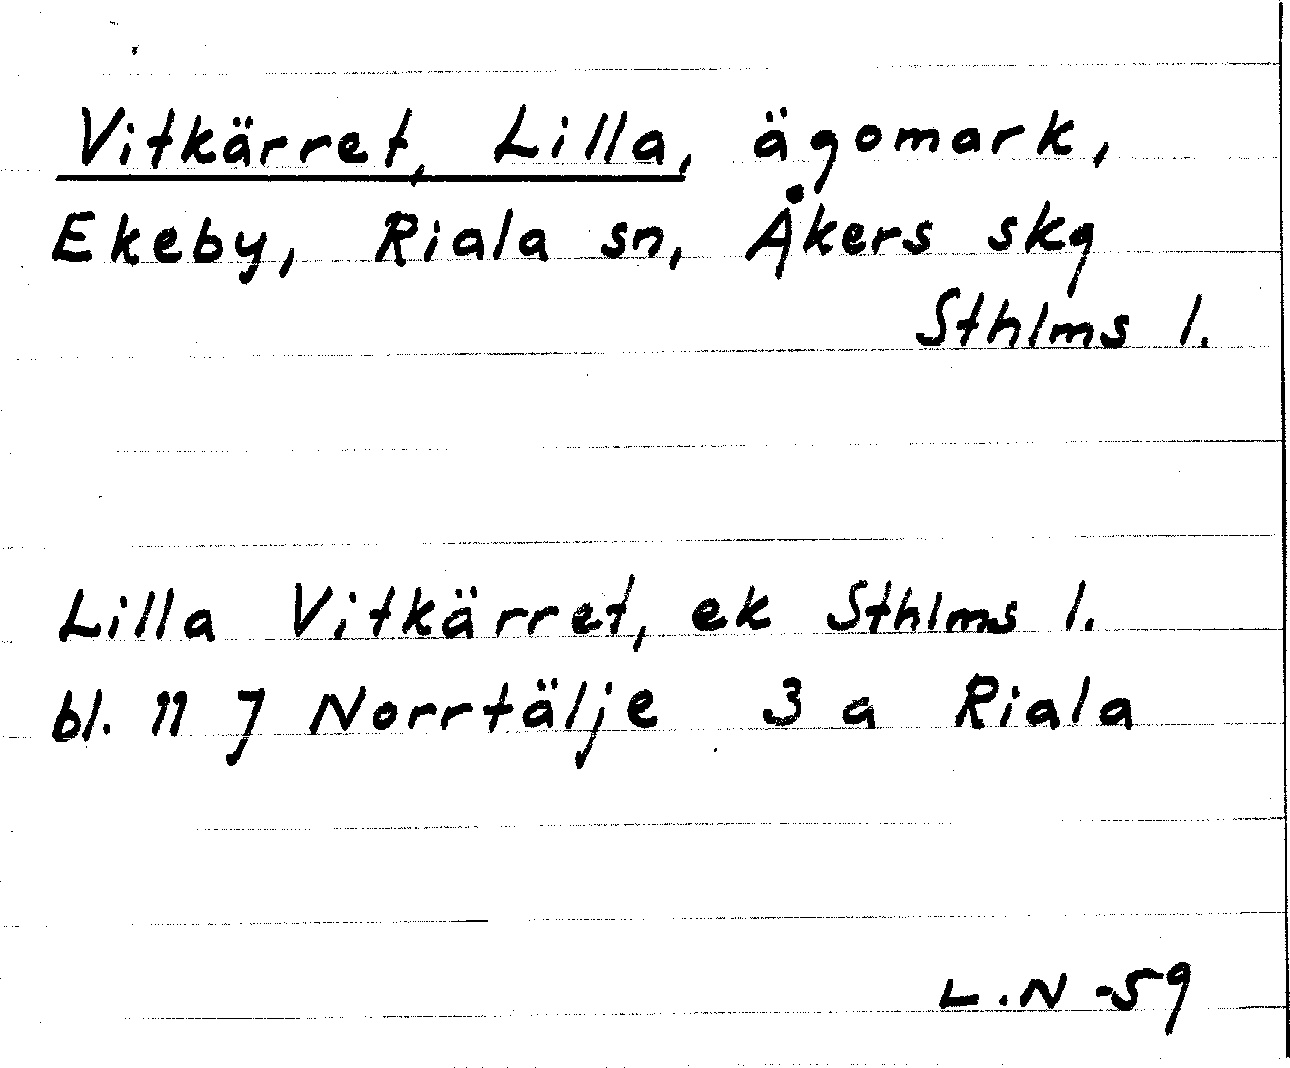 Vitkärret, Lilla, ägomark,
Ekeby, Riala sn, Åkers skg
Sthlms l.
Lilla Vitkärret, ek Sthlms l.
bl. 11 J Norrtälje 3 a Riala
L.N -59